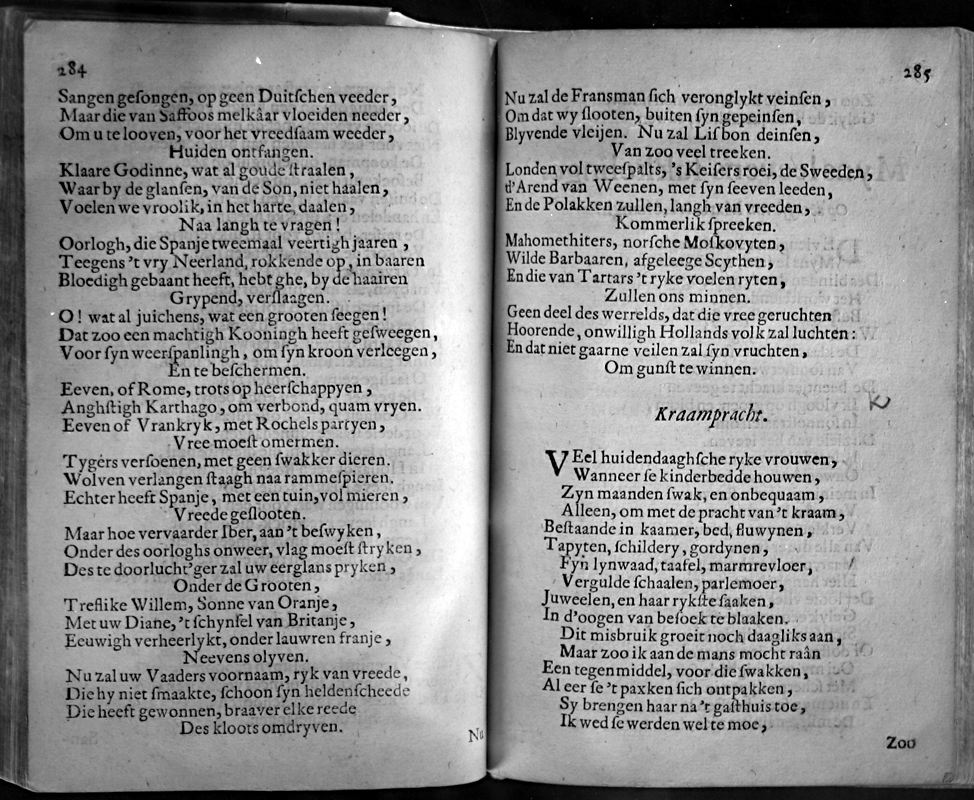 284
Sangen gesongen, op geen Duitschen veeder,
Maar die van Saffoos melkâar vloeiden needer,
Om u te looven, voor het vreedsaam weeder,
Huiden ontfangen.
Klaare Godinne, wat al goude straalen,
Waar by de glansen, van de Son, niet haalen,
Voelen we vroolik, in het harte, daalen,
Naa langh te vragen!
Oorlogh, die Spanje tweemaal veertigh jaaren,
Teegens 't vry Neerland, rokkende op, in baaren
Bloedigh gebaant heeft, hebt ghe, by de haairen
Grypend, verslaagen.
O! wat al juichens, wat een grooten seegen!
Dat zoo een machtigh Kooningh heeft gesweegen,
Voor syn weerspanlingh, om syn kroon verleegen,
En te beschermen.
Eeven, of Rome, trots op heerschappyen,
Anghstigh Karthago, om verbond, quam vryen.
Eeven of Vrankryk, met Rochels partyen,
Vree moest omermen.
Tygers versoenen, met geen swakker dieren.
Wolven verlangen staagh naa rammespieren.
Echter heeft Spanje, met een tuin, vol mieren,
Vreede geslooten.
Maar hoe vervaarder Iber, aan 't beswyken,
Onder des oorloghs onweer, vlag moest stryken,
Des te doorlucht'ger zal uw eerglans pryken,
Onder de Grooten,
Treflike Willem, Sonne van Oranje,
Met uw Diane, 't schynsel van Britanje,
Eeuwigh verheerlykt, onder lauwren franje,
Neevens olyven.
Nu zal uw Vaaders voornaam, ryk van vreede,
Die hy niet smaakte, schoon syn heldenscheede
Die heeft gewonnen, braaver elke reede
Des kloots omdryven.
Nu
285
Nu zal de Fransman sich veronglykt veinsen,
Om dat wy slooten, buiten syn gepeinsen,
Blyvende vleijen. Nu zal Lisbon deinsen,
Van zoo veel treeken.
Londen vol tweespalts, 's Keisers roei, de Sweeden,
d'Arend van Weenen, met syn seeven leeden,
En de Polakken zullen, langh van vreeden,
Kommerlik spreeken.
Mahomethiters, norsche Moskovyten,
Wilde Barbaaren, afgeleege Scythen,
En die van Tartars 't ryke voelen ryten,
Zullen ons minnen.
Geen deel des werrelds, dat die vree geruchten
Hoorende, onwilligh Hollands volk zal luchten:
En dat niet gaarne veilen zal syn vruchten,
Om gunst te winnen.
Kraampracht.
VEel huidendaaghsche ryke vrouwen,
Wanneer se kinderbedde houwen,
Zyn maanden swak, en onbequaam,
Alleen, om met de pracht van 't kraam,
Bestaande in kaamer, bed, fluwynen,
Tapyten, schildery, gordynen,
Fyn lynwaad, taafel, marmrevloer,
Vergulde schaalen, parlemoer,
Juweelen, en haar rykste saaken,
In d'oogen van besoek te blaaken.
Dit misbruik groeit noch daagliks aan,
Maar zoo ik aan de mans mocht raân
Een tegenmiddel, voor die swakken,
Al eer se 't paxken sich ontpakken,
Sy brengen haar na 't gasthuis toe,
Ik wed se werden wel te moe,
Zoo